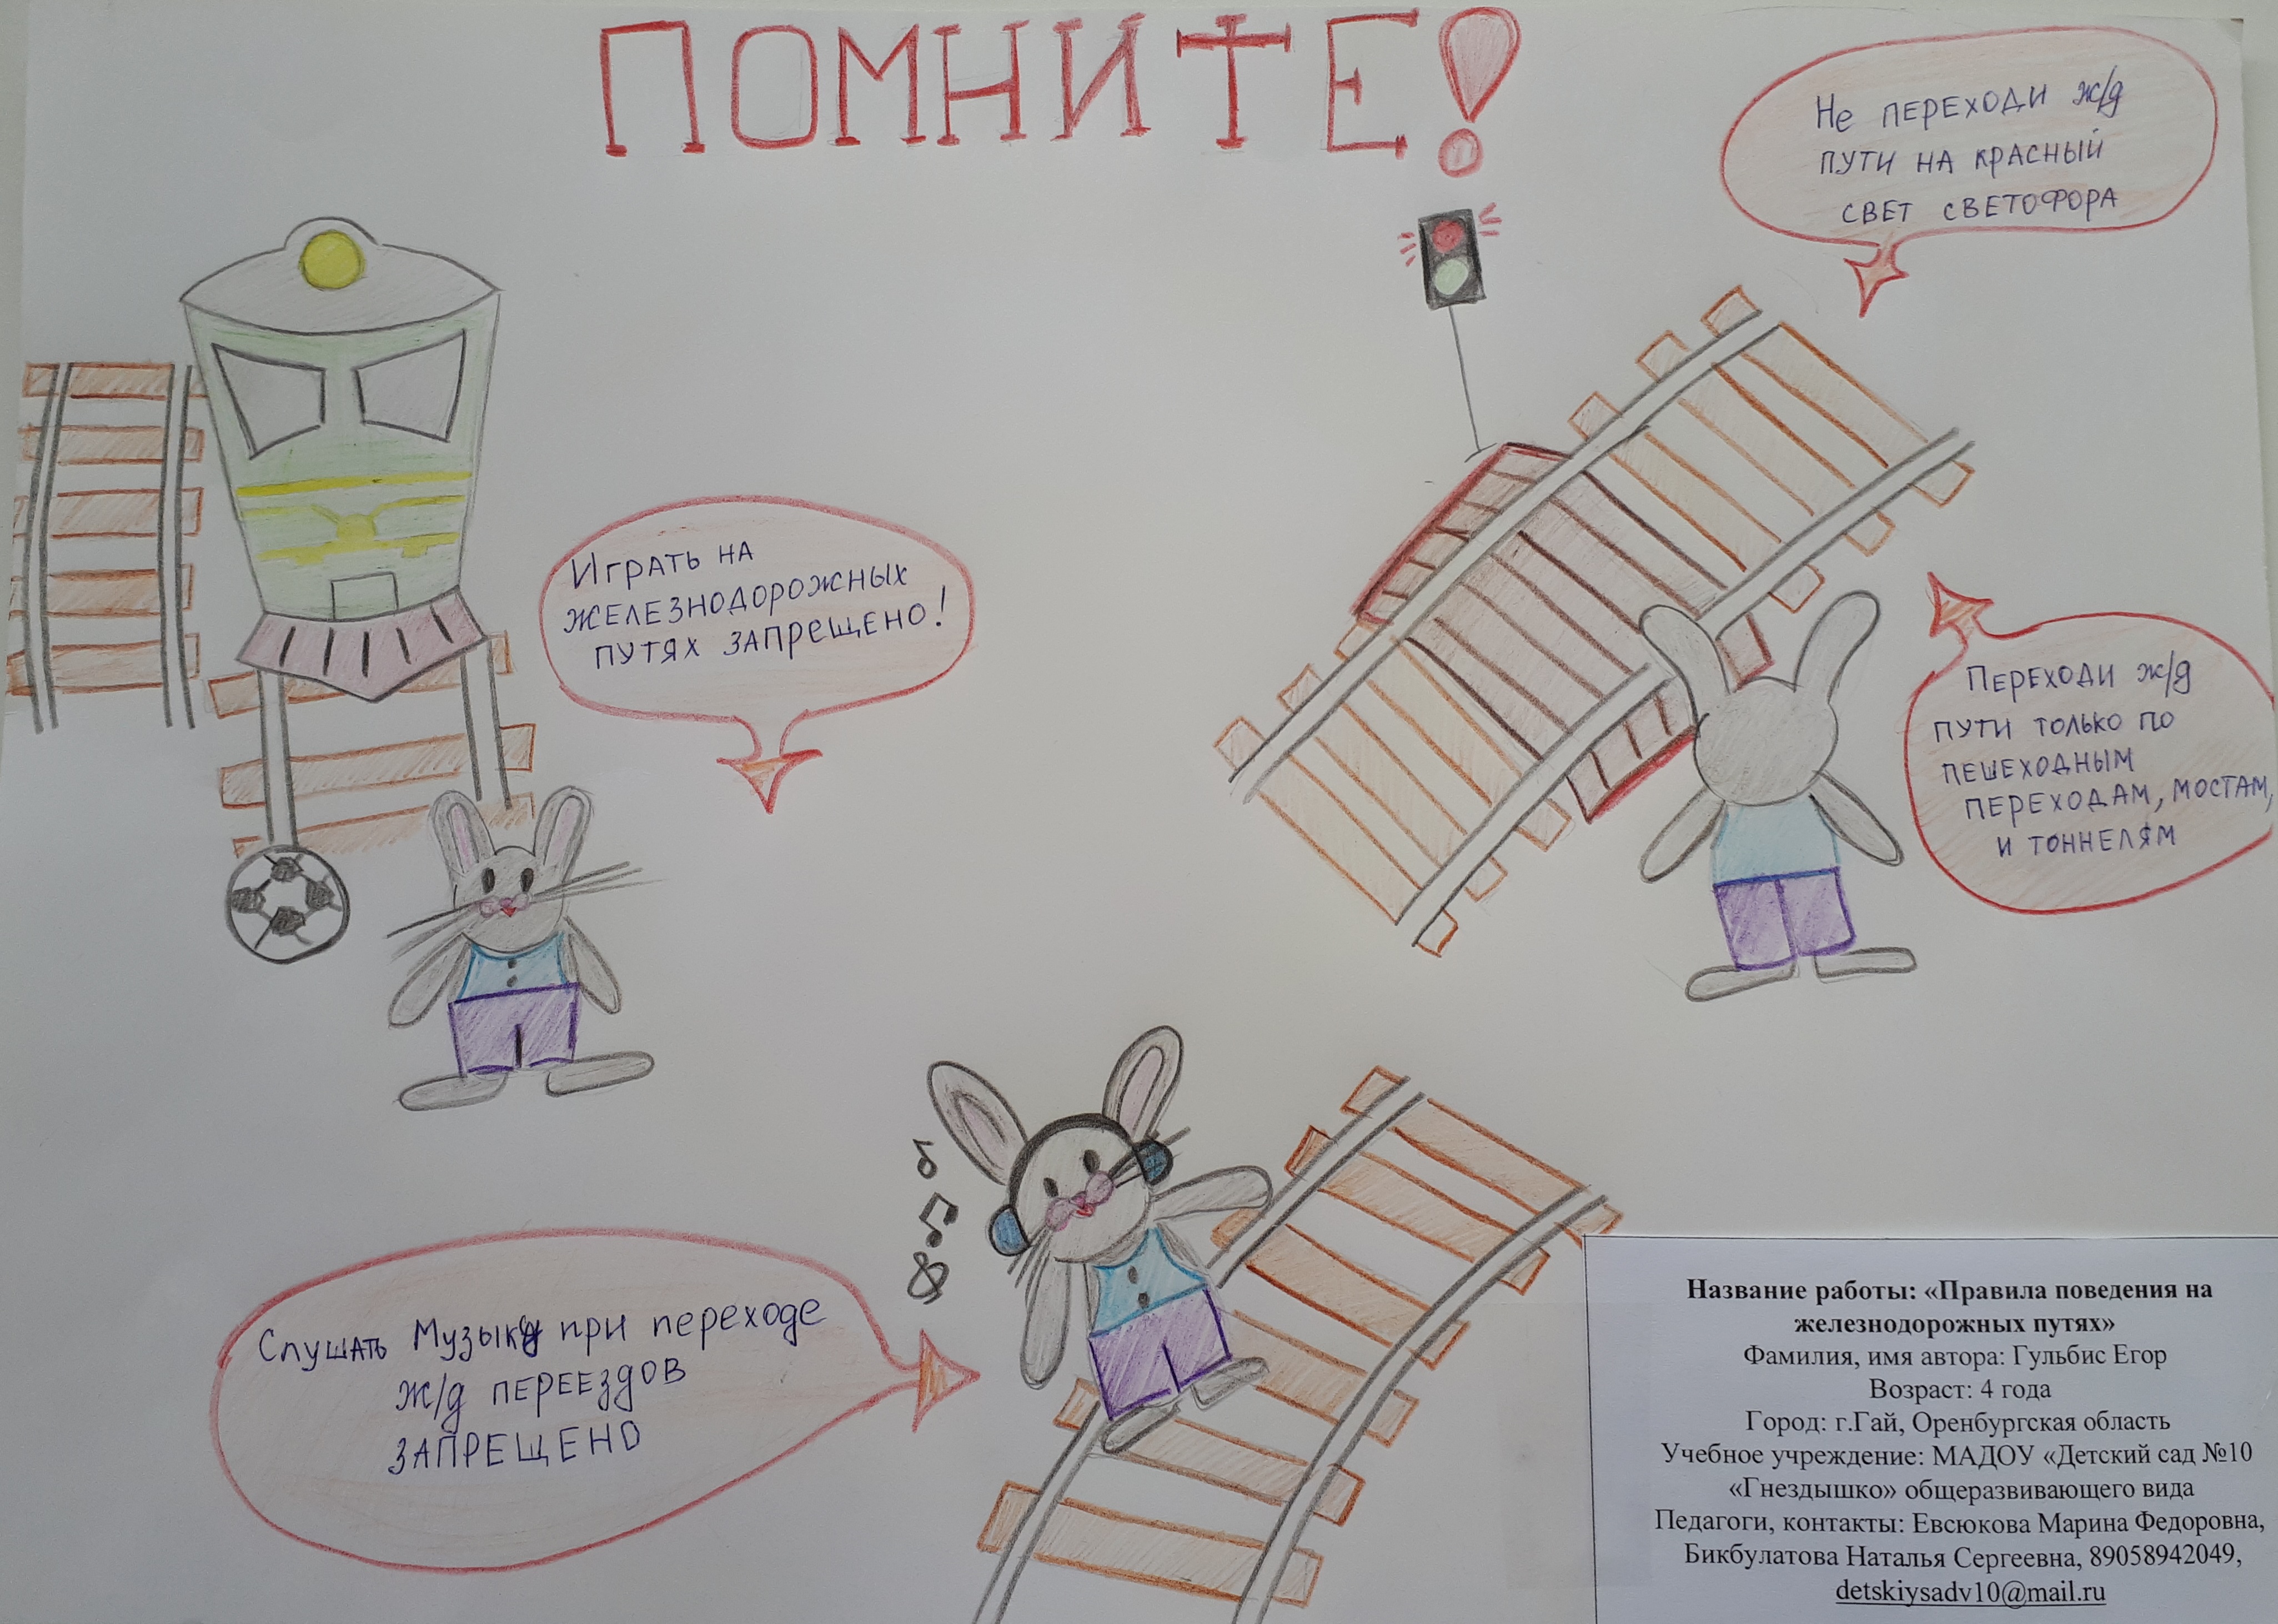 ПОМНИТЕ!
Не ПЕРЕХОДИ Ж/д
ПУТИ НА КРАСНЫЙ
СВЕТ СВЕТОФОРА
ИГРАТЬ НА
ЖЕЛЕЗНОДОРОЖНЫХ
ПУТЯХ ЗАПРЕЩЕНО!
ПЕРЕХОДИ Ж/д
ПУТИ ТОЛЬКО ПО
ПЕШЕХОДНЫМ
ПЕРЕХОДАМ, МОСТАМ,
И ТОННЕЛЯМ
Слушать Музыку при переходе
Ж/д ПЕРЕЕЗДОВ
ЗАПРЕЩЕНО
Название работы: «Правила поведения на
железнодорожных путях»
Фамилия, имя автора: Гульбис Егор
Возраст: 4 года
Город: г.Гай, Оренбургская область
Учебное учреждение: МАДОУ «Детский сад №10
«Гнездышко» общеразвивающего вида
Педагоги, контакты: Евсюкова Марина Федоровна,
Бикбулатова Наталья Сергеевна, 89058942049,
detskiysadv10@mail.ru